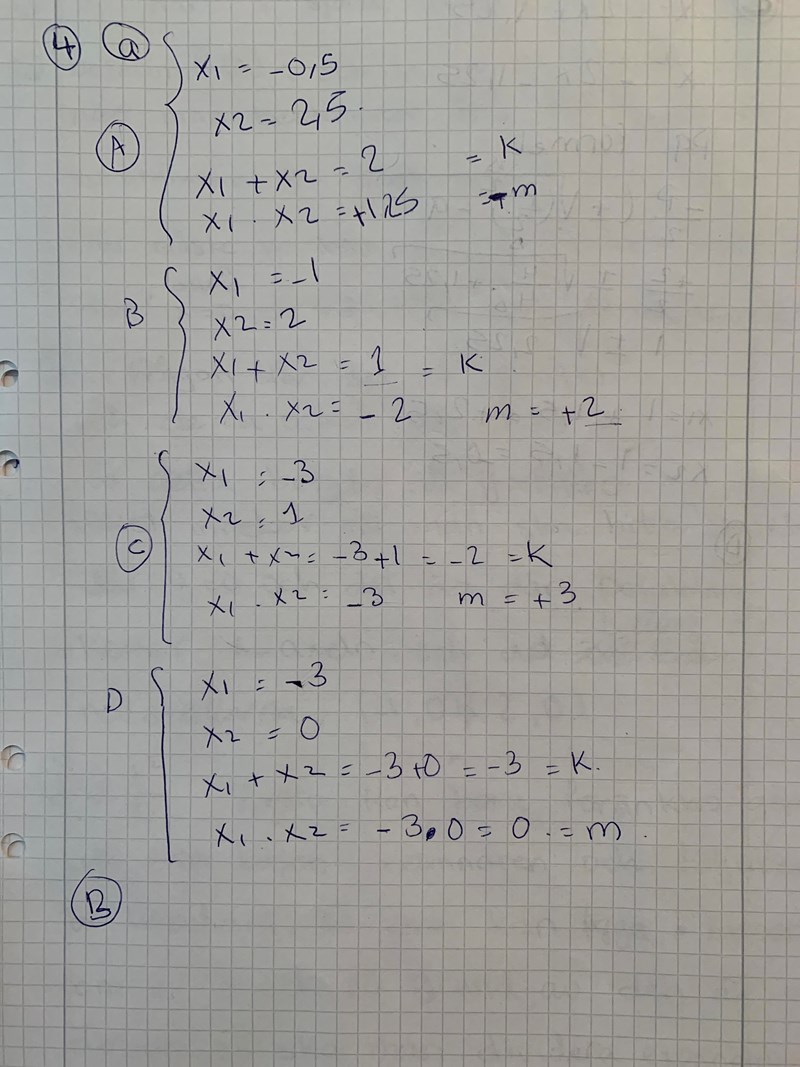 4 a
x1 = -0,5
x2 = 2,5.
A
x1 + x2 = 2 = K
x1 . x2 = +1,25 = -m
B
x1 = -1
x2 = 2
x1 + x2 = 1 = K
x1 . x2 = - 2 m = +2
C
x1 = -3
x2 = 1
x1 + x2 = -3+1 = -2 = K
x1 . x2 = -3 m = +3
D
x1 = -3
x2 = 0
x1 + x2 = -3+0 = -3 = K.
x1 . x2 = -3.0 = 0 . = m .
B